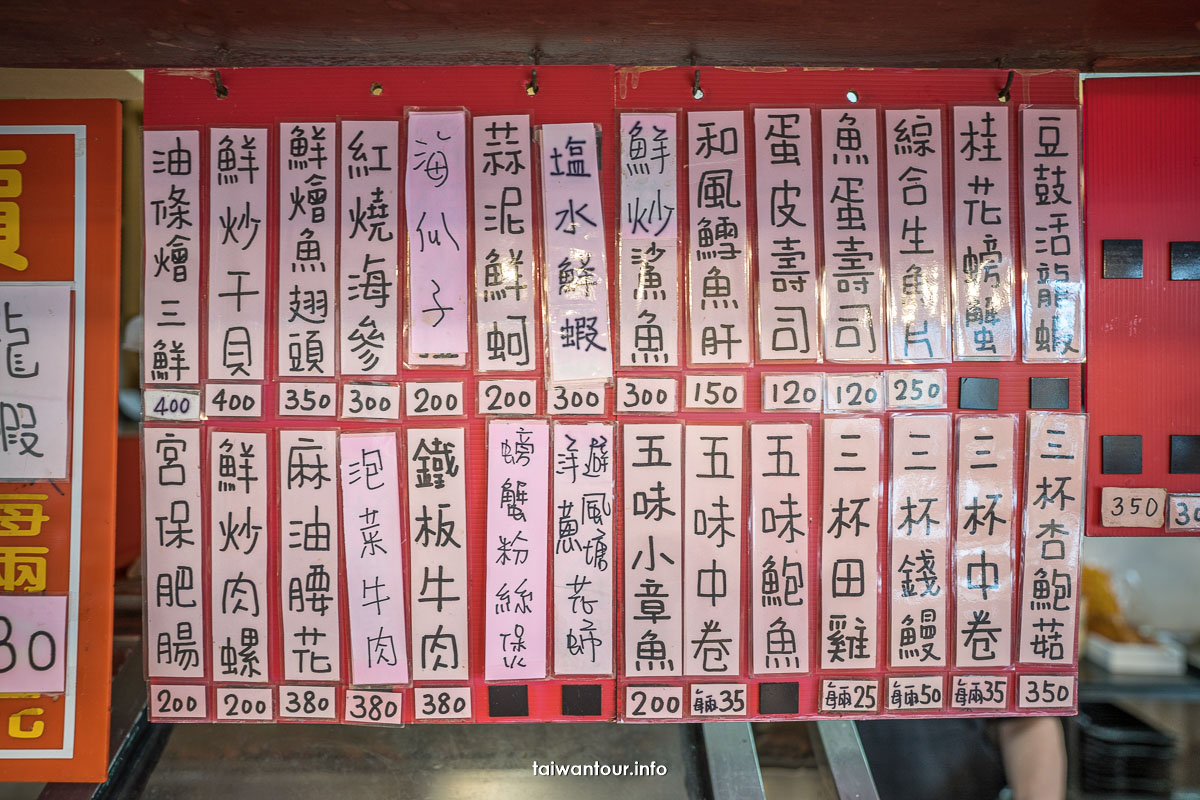 豆鼓活龍蝦
桂花螃蟹
綜合生魚片
250
魚蛋壽司
120
蛋皮壽司
120
和風鱈魚肝
150
鮮炒鯊魚
300
塩水鮮蝦
300
蒜泥鮮蚵
200
海瓜子
200
紅燒海參
300
鮮燴魚翅頭
350
鮮炒干貝
400
油條燴三鮮
400
三杯杏鮑菇
350
三杯中卷
每兩35
三杯錢鰻
每兩50
三杯田雞
每兩25
五味鮑魚
五味中卷
每兩35
五味小章魚
200
避風塘
洋蔥
花蟳
螃蟹粉絲保
鐵板牛肉
380
泡菜牛肉
380
麻油腰花
380
鮮炒肉螺
200
宮保肥腸
200
350
龍
蝦
每
兩
taiwantour.info